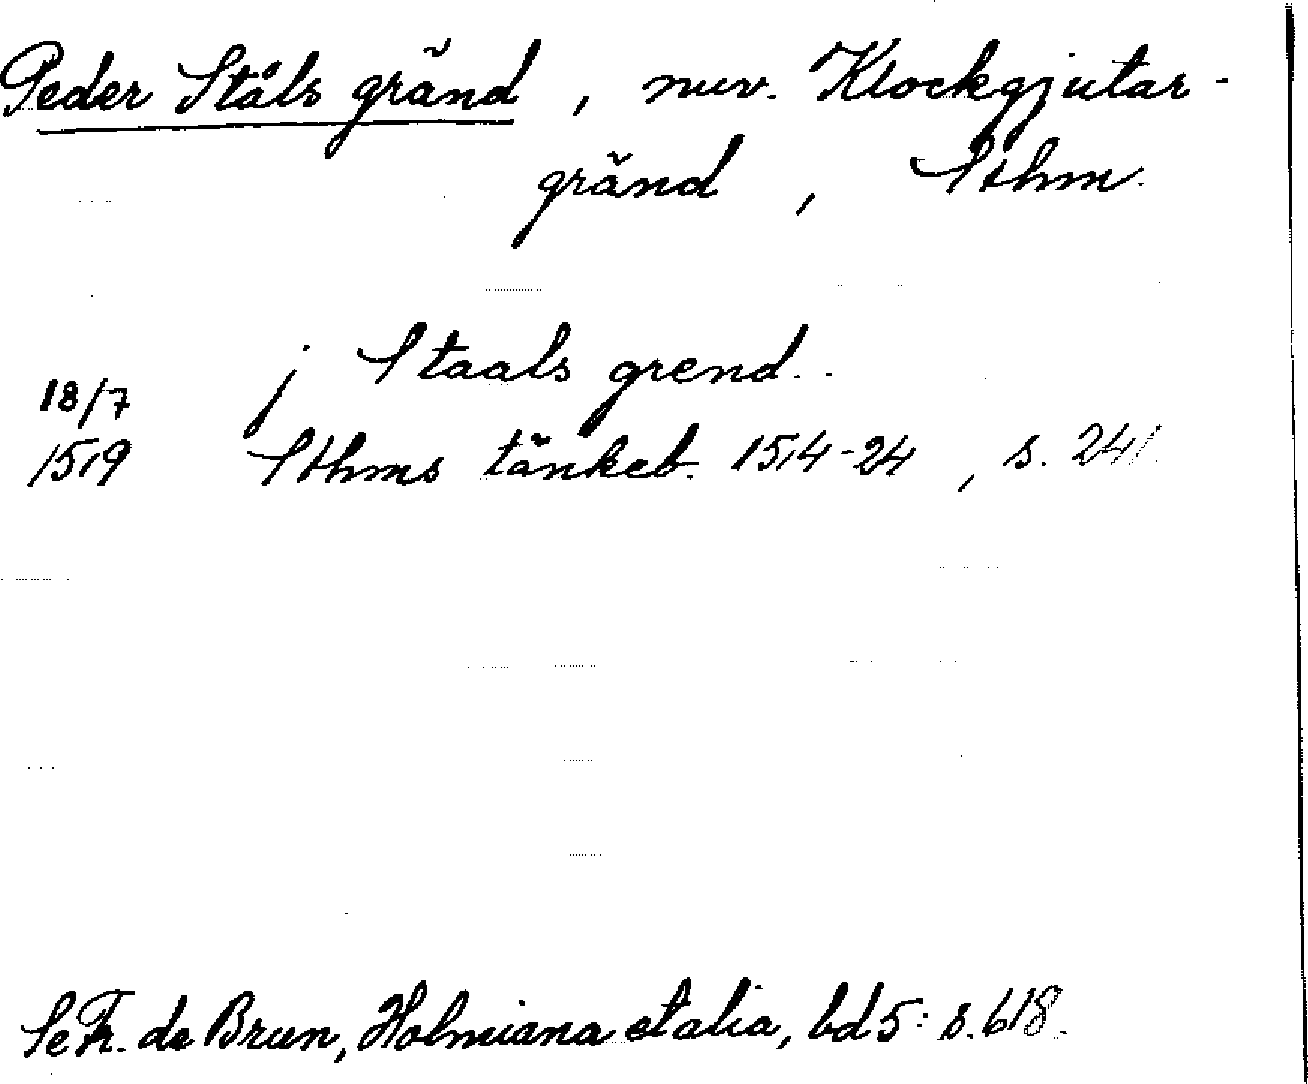 Peder Ståls gränd, nuv. Klockgjutar-
gränd, Sthm.
j Staals grend..
18/7
1519 Sthms tänkeb. 1514-24, s. 241.
Se Fr. de Brun, Holmiana et alia, bd 5: s. 618.